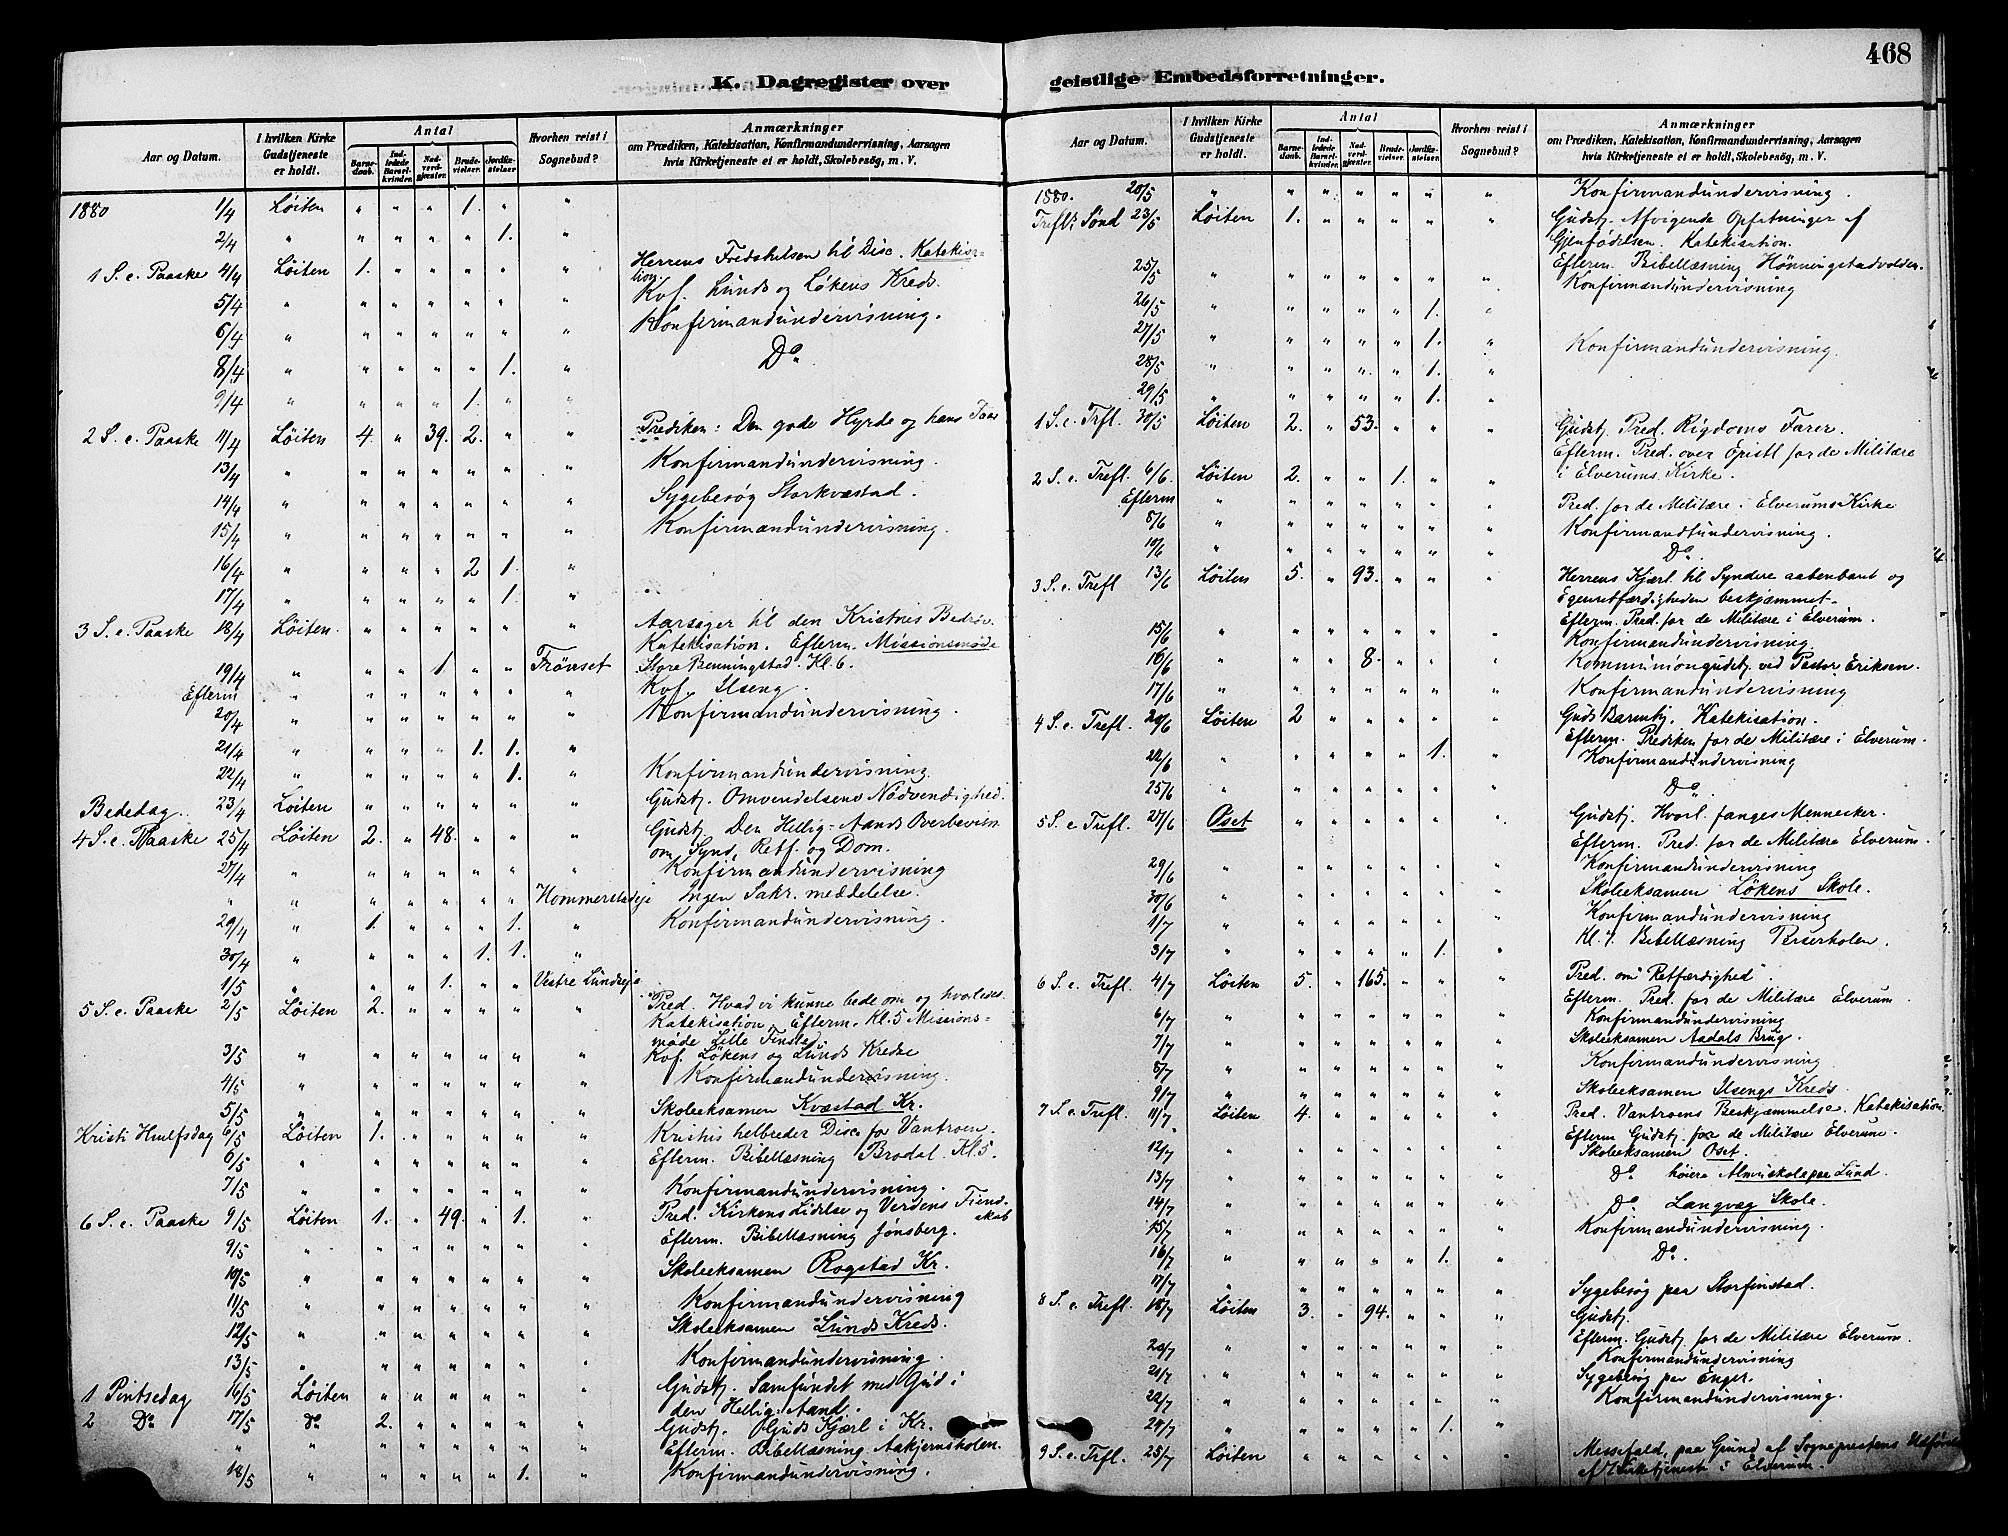 468
K. Dagregister over geistlige Embedsforretninger.
Aar og Datum. I hvilken Kirke Gudstjeneste er holdt. Antal Barnedaab. Indledede Barselkvinder. Nadverdgjæster. Brudevielser. Jordfæstelser. Hvorhen reist i Sognebud? Anmærkninger om Prædiken, Katekisation, Konfirmandundervisning, Aarsagen hvis Kirketjeneste et er holdt, Skolebesög, m. V.
1880 1/4 Löiten " " " 1. " "
2/4 " " " " " 1. "
1 S. e. Paaske 4/4 Löiten 1. " " " " " Herrens Fredshilsen til Disc. Katekisa-
tion.
5/4 " " " " " " " Kvf. Lunds og Løkens Kreds.
6/4 " " " " " " " Konfirmandundervisning.
8/4 " " " " " 1. " Do
9/4 " " " " 1. " "
2 S. e. Paaske 11/4 Löiten 4. " 39. 2. " " Prediken: Den gode Hyrde og hans Faar
13/4 " " " " " " " Konfirmandundervisning.
14/4 " " " " " " " Sygebesøg Storkvæstad.
15/4 " " " " " " " Konfirmandundervisning.
16/4 " " " " 2 1. "
17/4 " " " " " 1. "
3 S. e. Paaske 18/4 Löiten " " " " " " Aarsager til den Kristnes Bedröv.
Katekisation. Efterm. Missionsmøde
19/4 " " " 1 " " Frönset Store Benningstad. Kl. 6.
Efterm " " " " " " " Kvf. Ilseng.
20/4 " " " " " " " Konfirmandundervisning.
21/4 " " " " 1. 1. "
22/4 " " " " " 1. " Konfirmandundervisning.
Bededag 23/4 Löiten " " " " " " Gudstj. Omvendelsens Nödvendighed.
4 S. e. Paaske 25/4 Löiten 2. " 48. " " " Gudstj. Den Hellig-Aands Overbevisn
om Synd, Retf. og Dom.
27/4 " " " " " " " Konfirmandundervisning
" " " " " " " Hommerstadeje Ingen Sakr. meddelelse.
29/4 " 1. " " " 1. " Konfirmandundervisning.
30/4 " " " " 1. 1. "
1/5 " " " 1. " " Vestre Lundseje
5 S. e. Paaske 2/5 Löiten 2. " " " " " Pred. Hvad vi kunne bede om og hvorledes.
Katekisation. Efterm. Kl. 5 Missions-
møde Lille Finstad.
3/5 " " " " " " " Kvf. Løkens og Lunds Kredse
4/5 " " " " " " " Konfirmandundervisning.
5/5 " " " " " " " Skoleeksamen Kvæstad Kr.
Kristi Himlfsdag 6/5 Löiten 1. " " " " " Kristus helbreder Disc for Vantroen.
6/5 " " " " " " " Efterm. Bibellæsning Brodal. Kl. 5.
7/5 " " " " " " " Konfirmandundervisning.
6 S. e. Paaske 9/5 Löiten 1. " 49. " 1. " Pred. Kirkens Lidelse og Verdens Fiend-
skab
9/5 " " " " " " " Efterm. Bibellæsning Jønsberg.
10/5 " " " " " " " Skoleeksamen Rogstad Kr.
11/5 " " " " " " " Konfirmandundervisning
12/5 " " " " " " " Skoleeksamen Lunds Kreds.
13/5 " " " " " " " Konfirmandundervisning.
1 Pintsedag 16/5 Löiten " " " " " " Gudstj. Samfundet med Gud i
den Hellig-Aand.
2 Do 17/5 Do 2. " " " " " Gudstj. Guds Kjærl. i Kr.
" " " " " " " Efterm. Bibellæsning. Aakjernsholen.
18/5 " " " " " 1. " Konfirmandundervisning.
Aar og Datum. I hvilken Kirke Gudstjeneste er holdt. Antal Barnedaab. Indledede Barselkvinder. Nadverdgjæster. Brudevielser. Jordfæstelser. Hvorhen reist i Sognebud? Anmærkninger om Prædiken, Katekisation, Konfirmandundervisning, Aarsagen hvis Kirketjeneste et er holdt, Skolebesög, m. V.
1880. 20/5 " " " " " " " Konfirmandundervisning.
Trefls Sønd 23/5 Löiten 1. " " " " " Gudstj. Afvigende Opfatninger af
Gjenfödelsen. Katekisation.
Efterm. Bibellæsning Hønningstadvolden.
25/5 " " " " " " " Konfirmandundervisning
26/5 " " " " " 1. "
27/5 " " " " " 1. " Konfirmandundervisning.
28/5 " " " " " 1. "
29/5 " " " " " 1. "
1 S. e. Trfl. 30/5 Löiten 2. " 53. " " " Gudstj. Pred. Rigdoms Farer.
Efterm. Pred. over Epistl for de Militære
i Elverums Kirke.
2 S. e. Trefl. 6/6. Löiten 2. " " 1. " "
Efterm " " " " " " " Pred. for de Militære i Elverums Kirke
8/6 " " " " " " " Konfirmandundervisning.
10/6 " " " " " " " Do
3 S. e. Trefl 13/6 Löiten 5. " 93. " " " Herrens Kjærl. til Syndere aabenbaret og
Egenretfærdigheden beskjæmmet.
Efterm. Pred. for de Militære i Elverum.
15/6 " " " " " " " Konfirmandundervisning
16/6 " " " 8. " " " Kommuniongudstj. ved Pastor Eriksen.
17/6 " " " " " " " Konfirmandundervisning
4 S. e. Trefl. 20/6 Löiten 2 " " " " " Guds Barmhj. Katekisation.
Efterm. Prediken for de Militære i Elverum.
22/6 " " " " " 1. " Konfirmandundervisning
25/6 " " " " " " " Do.
5 S. e Trefl. 27/6 Oset " " " " " " Gudstj. Hvorl. fanges Mennecker.
Efterm. Pred. for de Militære Elverum.
29/6 " " " " " " " Konfirmandundervisning
30/6 " " " " " " " Skoleeksamen Lökens Skole.
1/7 " " " " " " " Konfirmandundervisning
3/7 " " " " " 1. " Kl. 7. Bibellæsning Perserholen.
6 S. e. Trefl. 4/7 Löiten 5. " 165. " " " Pred. om Retfærdighed.
Efterm. Pred. for de Militære Elverum.
6/7 " " " " " " " Konfirmandundervisning
7/7 " " " " " " " Skoleeksamen Aadals Brug.
8/7 " " " " " " " Konfirmandundervisning
9/7 " " " " " " " Skoleeksamen Ilsengs Kreds.
7 S. e. Trefl. 11/7 Löiten 4. " " " " " Pred. Vantroens Beskjæmmelse. Katekisation.
Efterm Gudstj. for de Militære Elverum.
12/7 " " " " " " " Skoleeksamen Oset.
13/7 " " " " " " " Do höiere Almuskole paa Lund.
14/7 " " " " " " " Do Langvæg Skole.
15/7 " " " " " " " Konfirmandundervisning.
16/7 " " " " " 1. " Do.
17/7 " " " " " " " Sygebesøg paa Storfinstad.
8 S. e. Trefl. 18/7 Löiten 3. " 94. " " " Gudstj.
Efterm. Gudstj for de Militære Elverum.
20/7 " " " " " " " Konfirmandundervisning
21/7 " " " " " " " Sygebesøg paa Enger.
22/7 " " " " " " " Konfirmandundervisning.
24/7 " " " " " 1. "
9 S. e. Trfl. 25/7 Löiten " " " " " " Messefald, paa Grund af Sognepresten
af Kirketjeneste i Elverum.